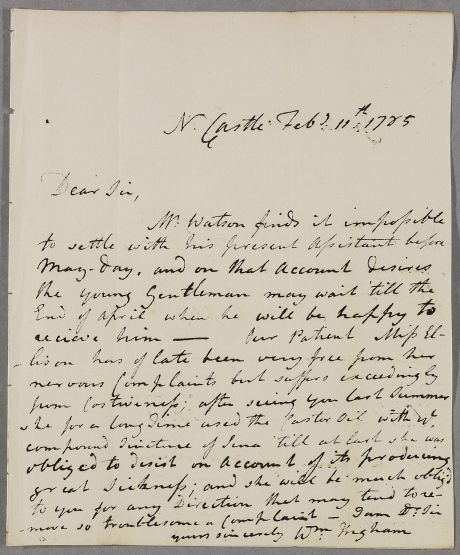 N. Castle Feb.y 11th 1785
Dear Sir,
Mr. Watson finds it impossible
to settle with his present Assistant before
May-Day, and on that Account desires
the young Gentleman may wait till the
End of April when he will be happy to
recieve him — Our Patient Miss El-
lison has of late been very free from her
nervous Complaints but suffers exceedingly
from Costiveness; after seeing you last Summer
she for a long time used the Castor Oil with ye
compound Tincture of Sena till at last she was
obliged to desist on Account of its producing
great Sickness; and she will be much oblig'd
to you for any Direction that may tend to re-
move so troublesome a Complaint — I am Dr. Sir
yours sincerely Wm Ingham